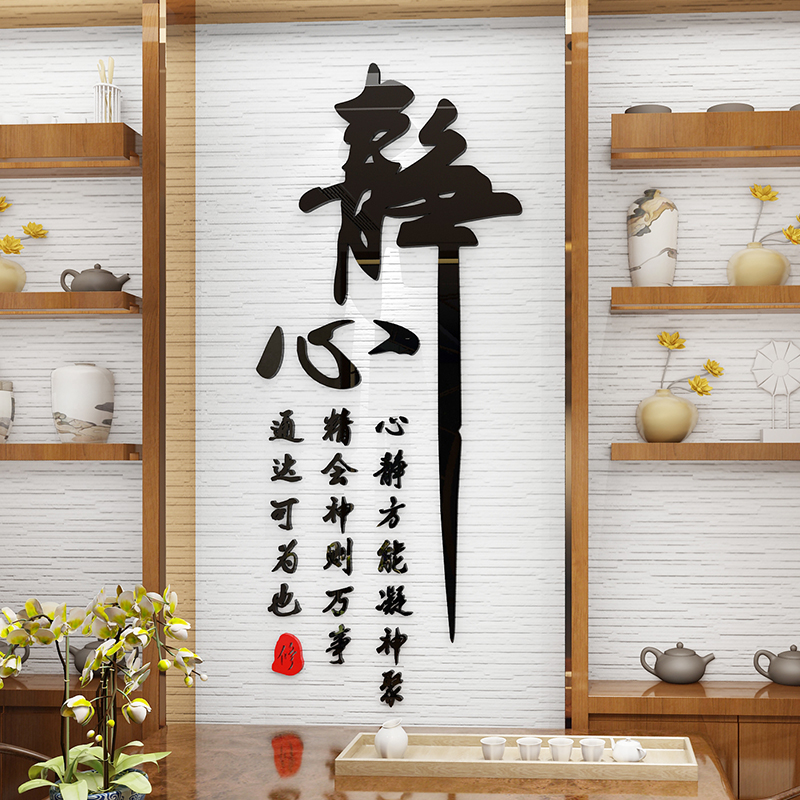 静心
心静方能凝神聚
精会神则万事
通达可为也
修